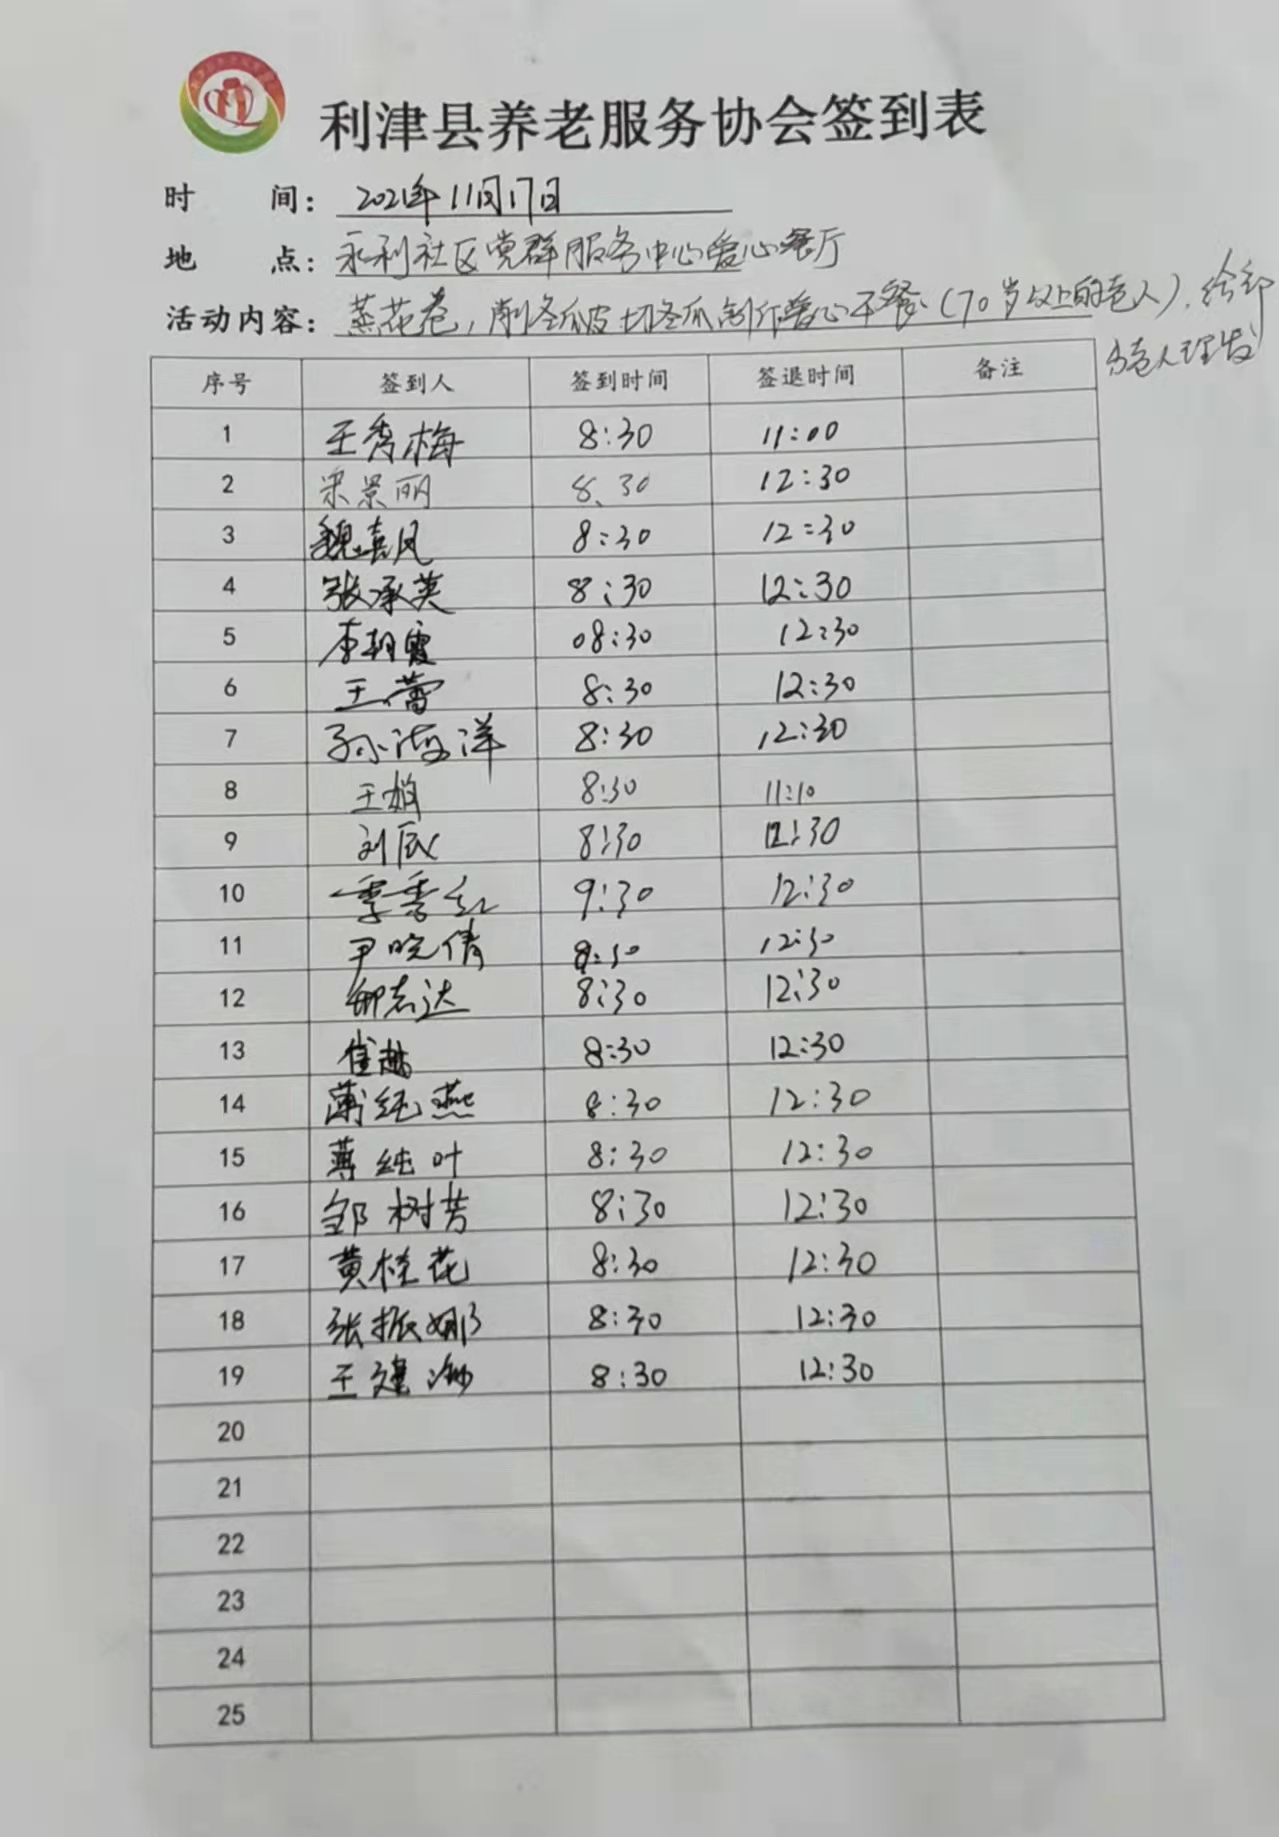 利津县养老服务协会签到表
时 间：2021年11月17日
地 点：永利社区党群服务中心爱心餐厅
活动内容：蒸花卷，削冬瓜皮切冬瓜制作爱心午餐（70岁以上的老人）.给
老人理发
序号 签到人 签到时间 签退时间 备注
1 王秀梅 8:30 11:00
2 宋景丽 8.30 12:30
3 魏喜凤 8:30 12:30
4 张承英 8:30 12:30
5 李朝霞 08:30 12:30
6 王蕾 8:30 12:30
7 孙海洋 8:30 12:30
8 王 8:30 11:10
9 刘辰 8:30 12:30
10 季秀红 9:30 12:30
11 尹晓倩 8:30 12:30
12 志达 8:30 12:30
13 崔越 8:30 12:30
14 薄纯燕 8:30 12:30
15 薄纯叶 8:30 12:30
16 邹树芳 8:30 12:30
17 黄桂花 8:30 12:30
18 张振娜 8:30 12:30
19 王建海 8:30 12:30
20
21
22
23
24
25